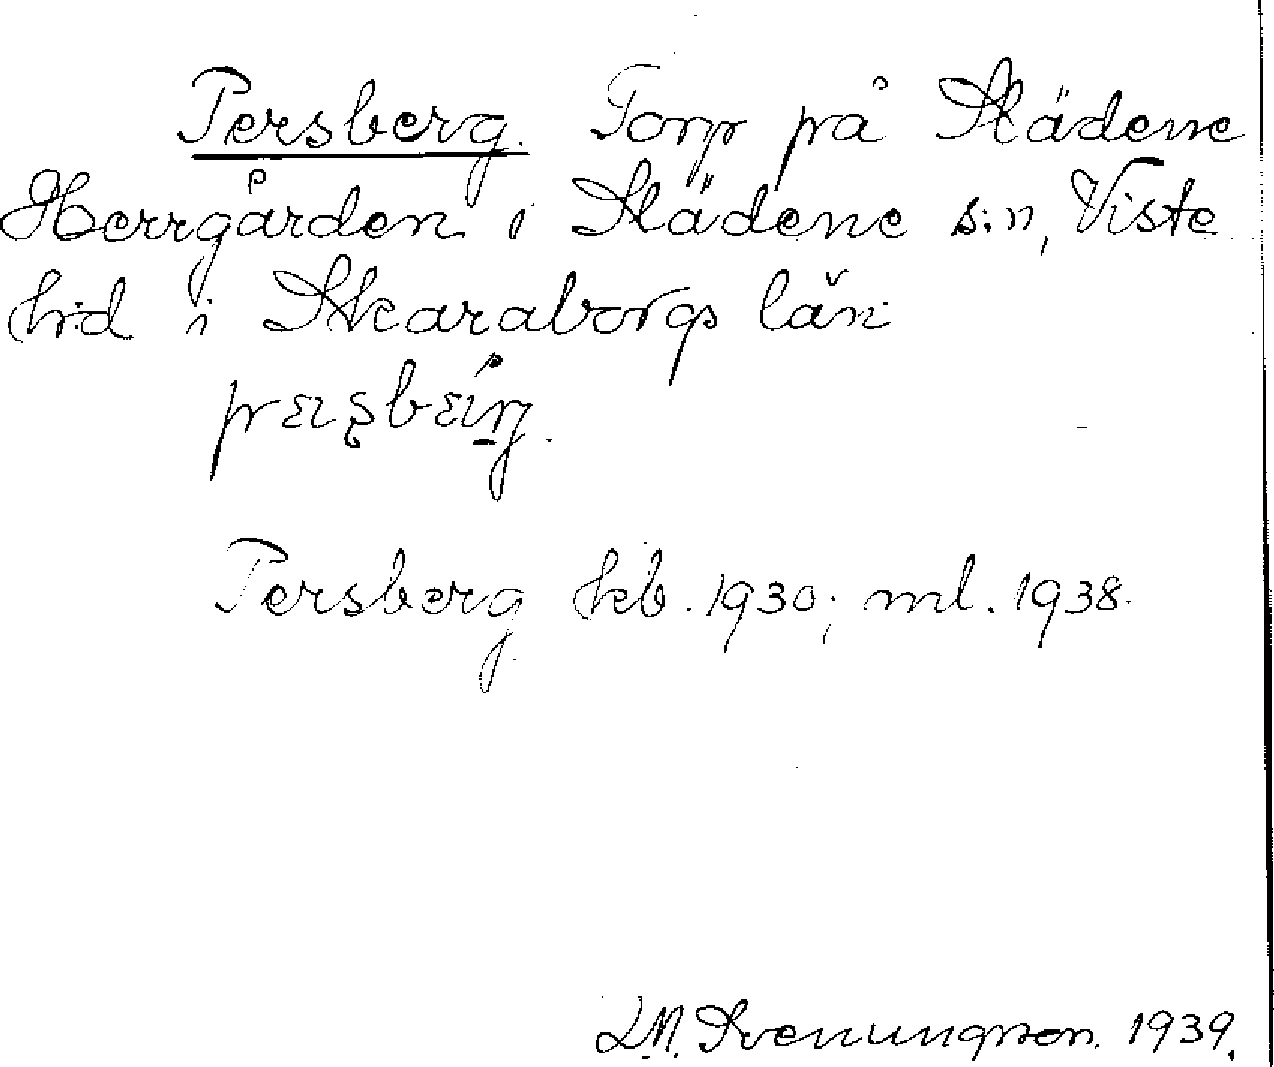 Persberg. Torp på Slädene
Herrgården i Slädene s:n, Viste
h:d i Skaraborgs län
Persberg kb. 1930; ml. 1938.
L.M. Svenungsson. 1939.